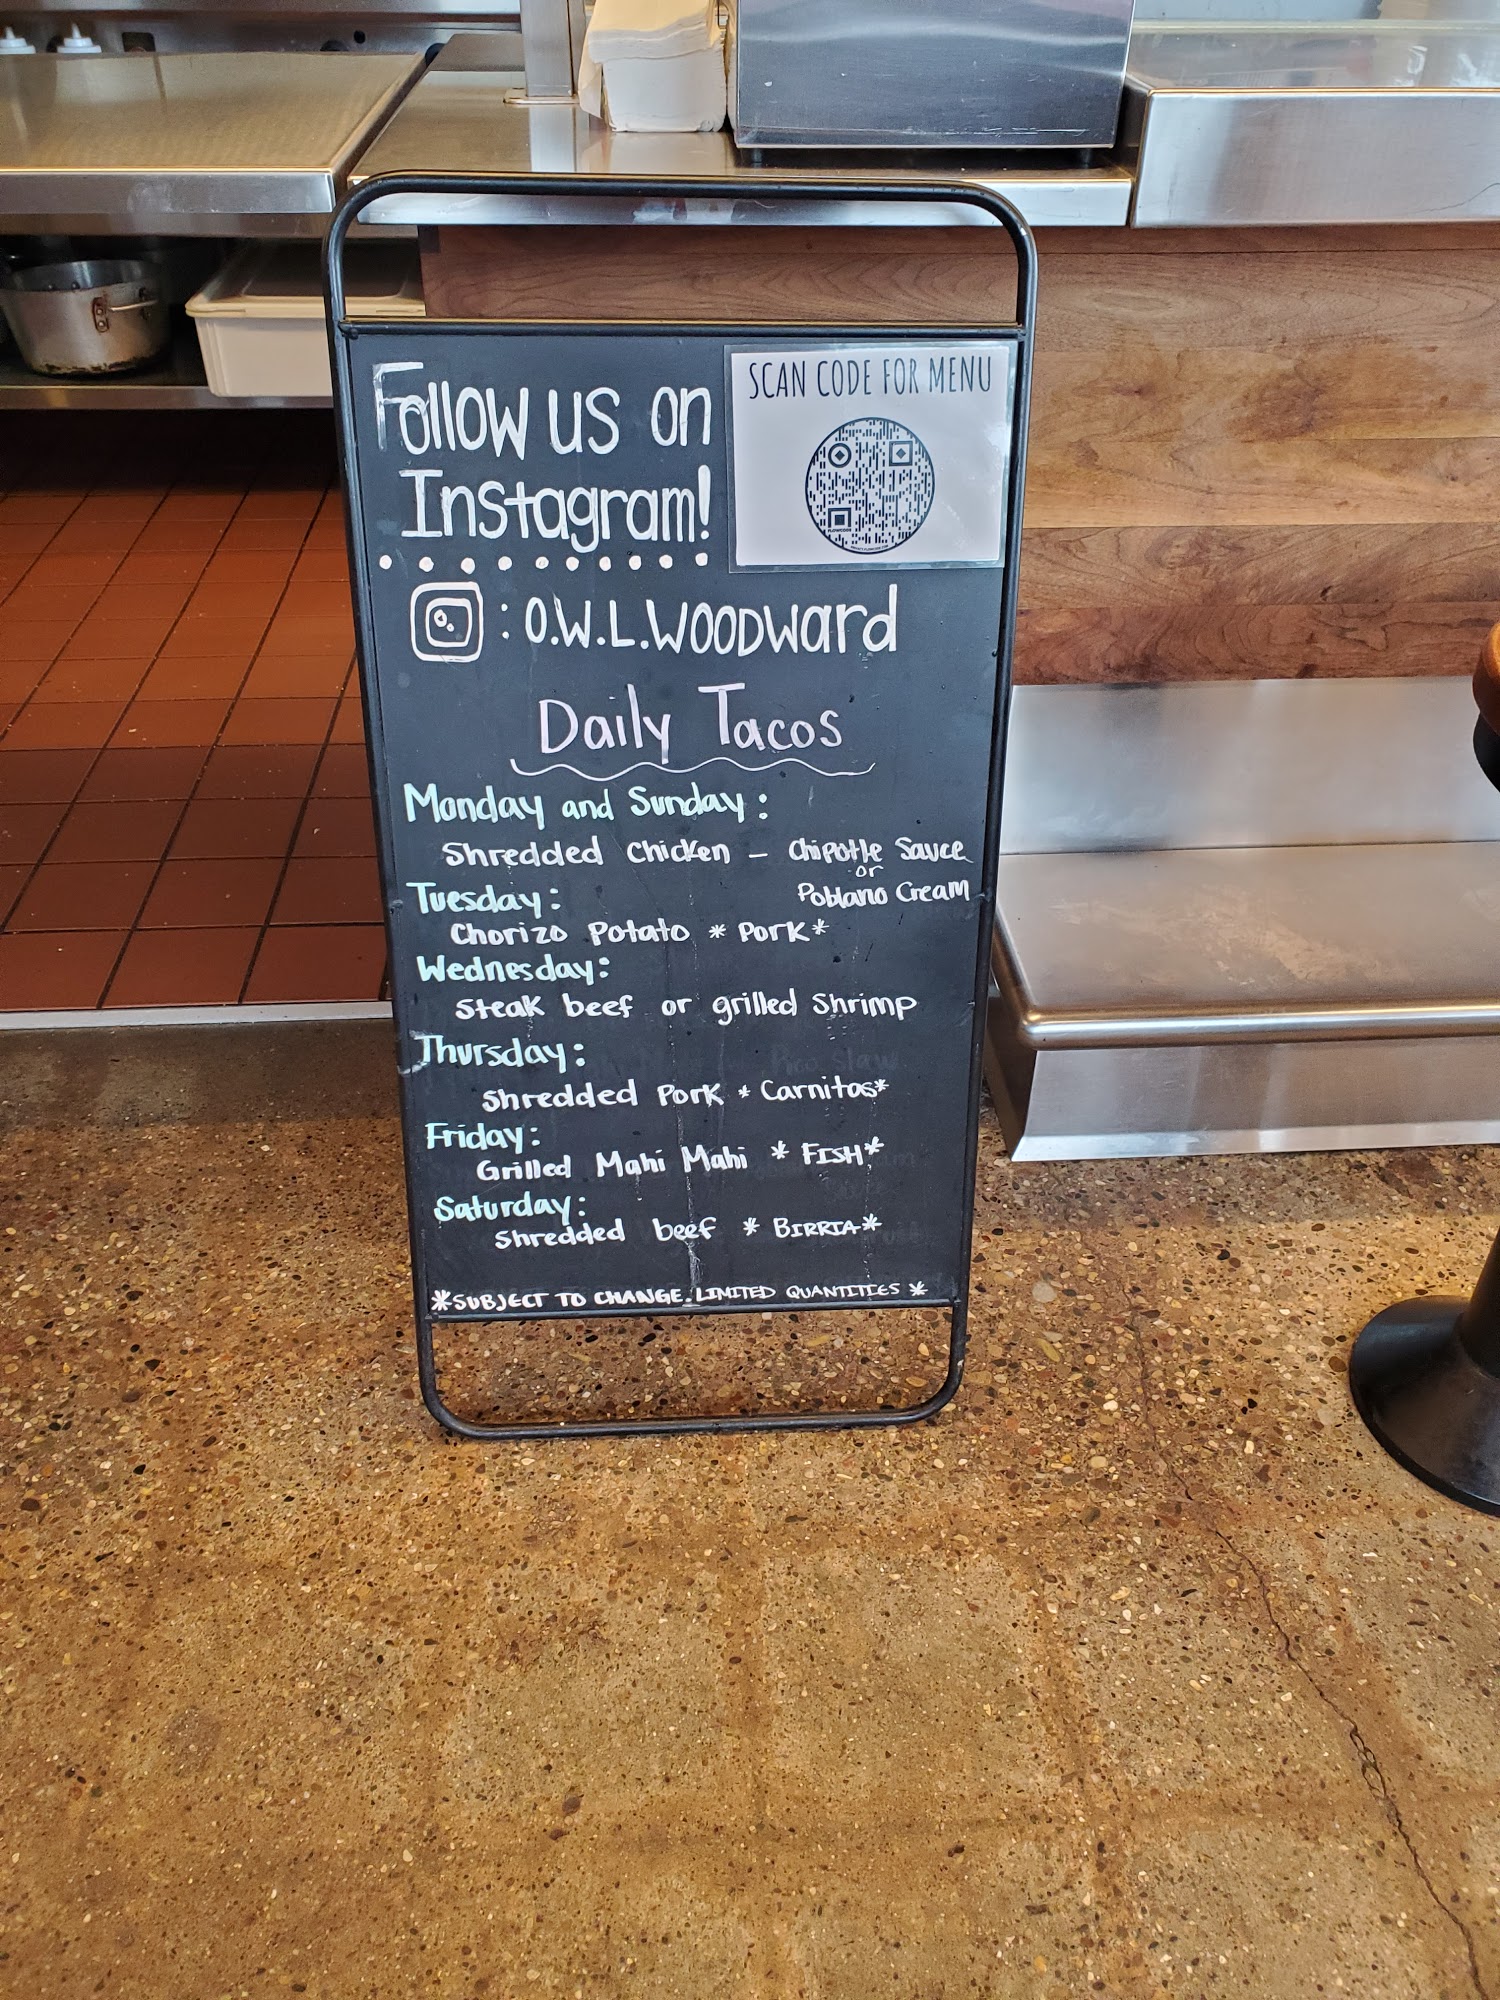 Follow us on
Instagram!
SCAN CODE FOR MENU
FLOWCODE
: O.W.L.WOODWard
Daily Tacos
Monday and Sunday:
Shredded Chicken – Chipotle Sauce
or
Poblano Cream
Tuesday:
Chorizo Potato * Pork*
Wednesday:
Steak beef or grilled Shrimp
Thursday:
Shredded Pork * Carnitas*
Friday:
Grilled Mahi Mahi * FISH*
Saturday:
Shredded beef * BIRRIA*
*SUBJECT TO CHANGE. LIMITED QUANTITIES *